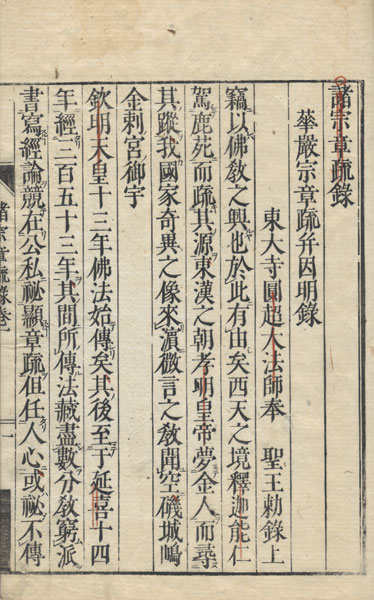 諸宗章疏錄
華嚴宗章疏并因明錄
東大寺圓超大法師奉 聖王勅錄上
竊以佛敎之興也於此有由矣西天之境釋迦能仁
駕鹿苑而疏其源東漢之朝孝明皇帝夢金人而尋
其蹤我國家奇異之像來濱微言之敎聞空磯城嶋
金刺宮御宇
欽明天皇十三年佛法始傳矣其後至于延喜十四
年經二百五十三年其間所傳法藏盡數分敎窮派
書寫經論競在公私祕顯章疏但任人心或祕不傳
諸宗章疏錄卷一